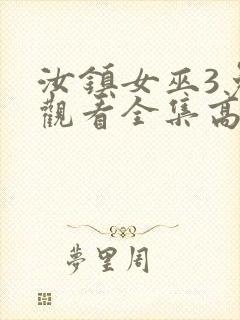 汝鎮女巫3
觀看全集高
夢里周